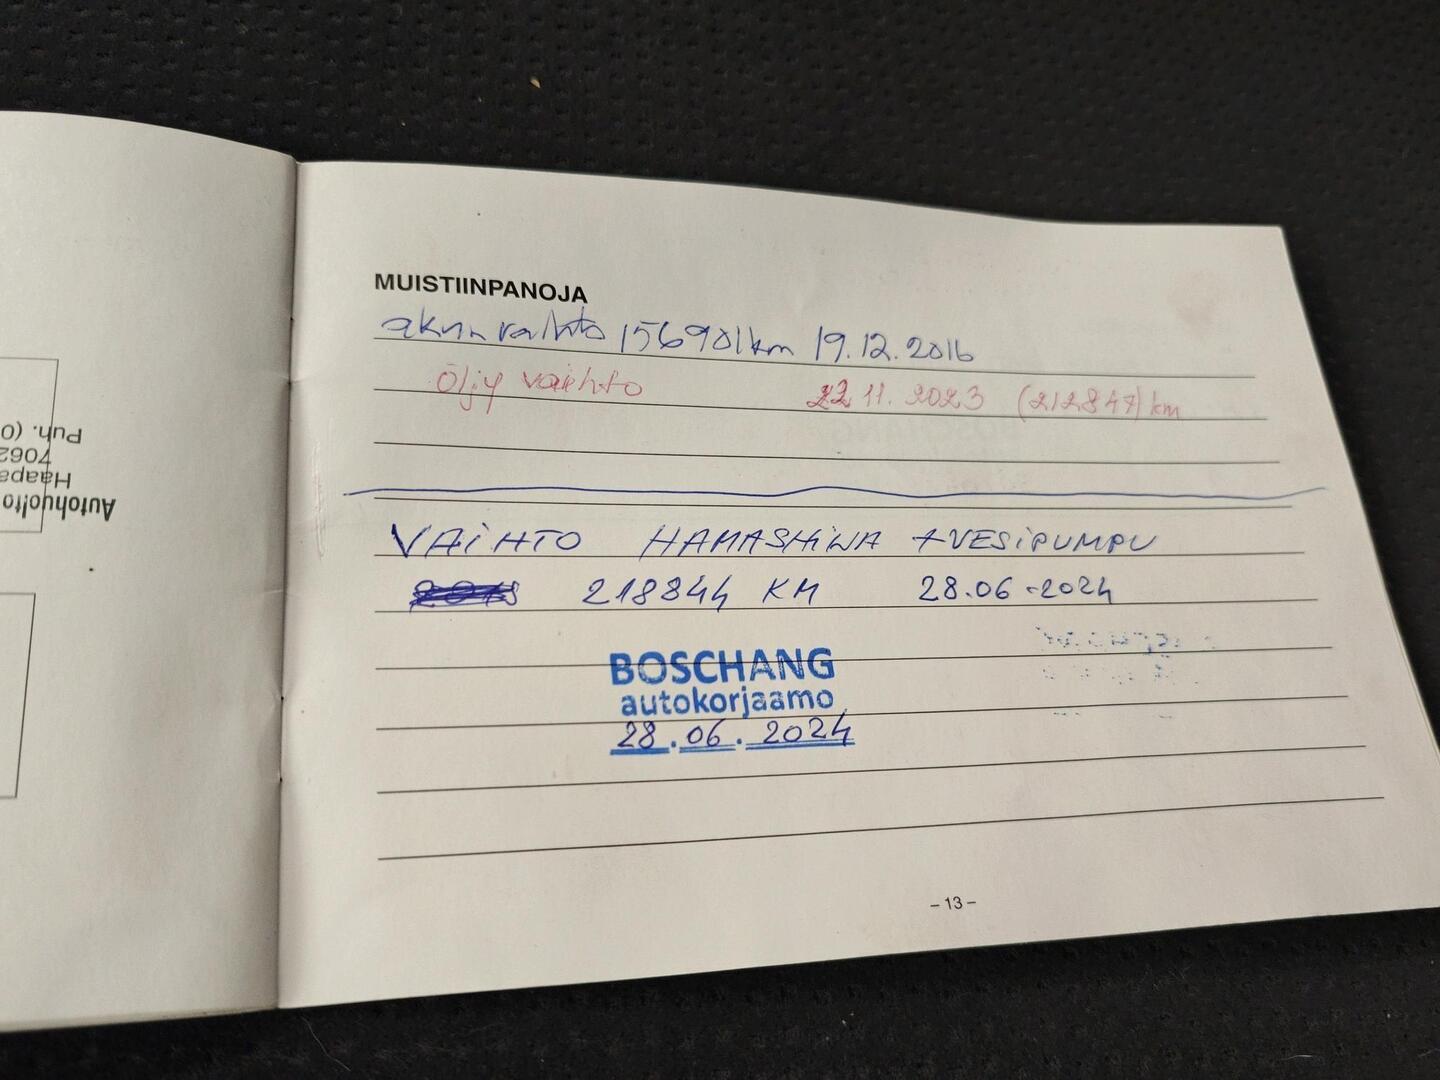 MUISTIINPANOJA
akun vaihto 156901km 19.12.2016
Öljy vaihto 22.11.2023 (212847) km
VAIHTO HAMASHiWA +VESiPUMPU
218844 KM 28.06-2024
BOSCHANG
autokorjaamo
28.06.2024
– 13 –
Autohuolto
Haapa
7062
Puh. (0